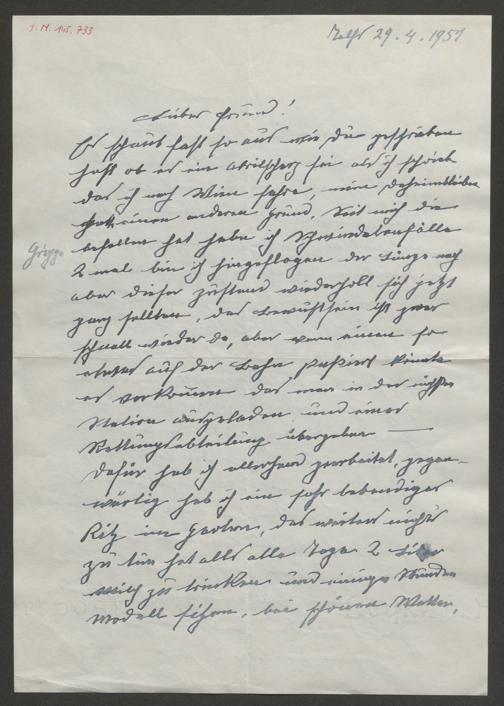 I.N. 145.733
Telfs 29.4.1957
Lieber Freund!
Es schaut fast so aus wie Du geschrieben
hast ob es ein Aprilscherz sei als ich schrieb
das ich nach Wien fahre, mein Daheimbleiben
hat einen anderen Grund. Seit mich die
Grippe
befallen hat habe ich Schwindelanfälle
2 mal bin ich hingeflogen der Länge nach
aber dieser Zustand wiederholt sich jetzt
ganz selten, das Bewußtsein ist zwar
schnell wieder da, aber wenn einem so
etwas auf der Bahn passiert könnte
es vorkommen das man in der nächsten
Station ausgeladen und einer
Rettungsabteilung übergeben —
Dafür hab ich allerhand gearbeitet gegen-
wärtig hab ich ein sehr lebendiges
Kitz im Garten, das weiter nichts
zu tun hat als alle Tage 2 Liter
Milch zu trinken und einige Stunden
Modell stehen, bei schönem Wetter,